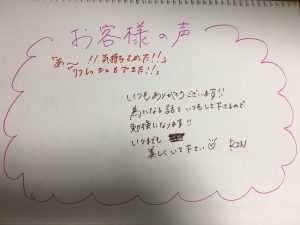 お客様の声
「あ〜!!気持ちよかった!!」
リフレッシュもできた!!」
いつもありがとうございます!!
為になる話をいつもして下さるので
勉強になります!!
いつまでも
美しくいて下さい♡ RIN